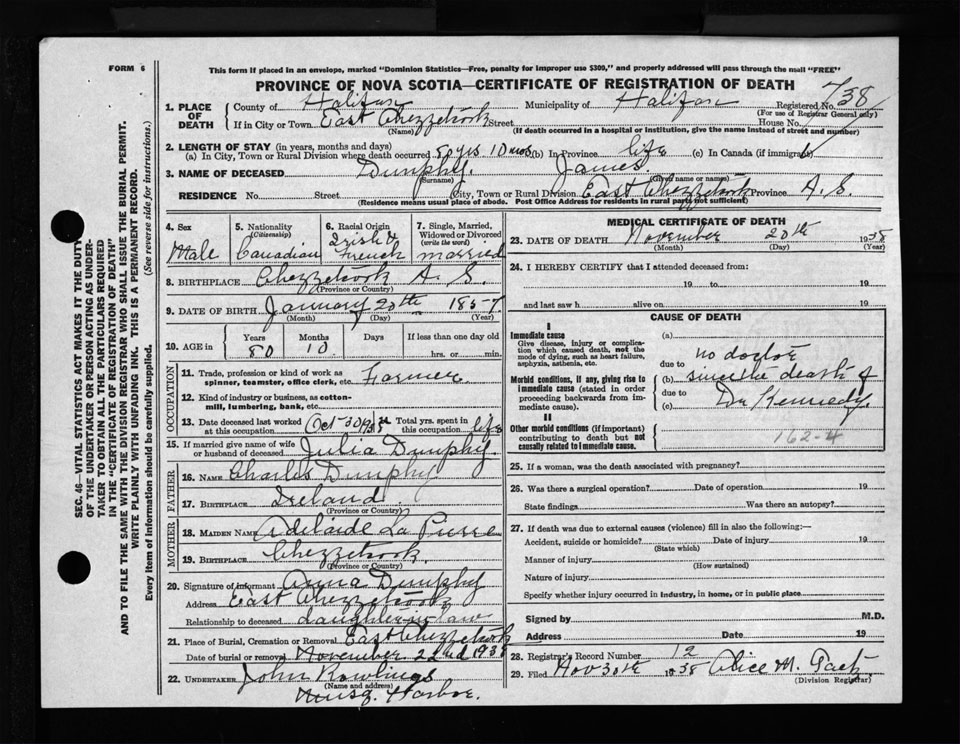 FORM 6
This form if placed in an envelope, marked "Dominion Statistics—Free, penalty for improper use $300," and properly addressed will pass through the mail "FREE"
PROVINCE OF NOVA SCOTIA—CERTIFICATE OF REGISTRATION OF DEATH
738
1. PLACE OF DEATH County of Halifax Municipality of Halifax Registered No.
(For use of Registrar General only)
If in City or Town East Chezzetcook Street House No.
(Name) (If death occurred in a hospital or institution, give the name instead of street and number)
2. LENGTH OF STAY (in years, months and days)
(a) In City, Town or Rural Division where death occurred 80 yrs. 10 mos. (b) In Province life (c) In Canada (if immigrant)
3. NAME OF DECEASED Dumphy. James.
(Surname) (Given name or names)
RESIDENCE No. Street City, Town or Rural Division East Chezzetcook Province N. S.
(Residence means usual place of abode. Post Office Address for residents in rural parts not sufficient)
4. Sex Male
5. Nationality (Citizenship) Canadian
6. Racial Origin Irish & French
7. Single, Married, Widowed or Divorced (write the word) married
8. BIRTHPLACE Chezzetcook N. S.
(Province or Country)
9. DATE OF BIRTH January 20th 1857
(Month) (Day) (Year)
10. AGE in Years 80 Months 10 Days If less than one day old
hrs. or min.
OCCUPATION
11. Trade, profession or kind of work as spinner, teamster, office clerk, etc. Farmer
12. Kind of industry or business, as cotton-mill, lumbering, bank, etc.
13. Date deceased last worked at this occupation Oct-30/19
14. Total yrs. spent in this occupation life
15. If married give name of wife or husband of deceased Julia Dumphy.
FATHER
16. NAME Charles Dumphy
17. BIRTHPLACE Ireland.
(Province or Country)
MOTHER
18. MAIDEN NAME Adelaide La Pierre
19. BIRTHPLACE Chezzetcook.
(Province or Country)
20. Signature of informant Anna Dumphy
Address East Chezzetcook
Relationship to deceased daughter in law
21. Place of Burial, Cremation or Removal East Chezzetcook
Date of burial or removal November 22nd 1938
22. UNDERTAKER John Rowlings
(Name and address)
Musq. Harbor.
MEDICAL CERTIFICATE OF DEATH
23. DATE OF DEATH November 20th 1938
(Month) (Day) (Year)
24. I HEREBY CERTIFY that I attended deceased from:
19 to 19
and last saw h alive on 19
CAUSE OF DEATH
I
Immediate cause
Give disease, injury or complication which caused death, not the mode of dying, such as heart failure, asphyxia, asthenia, etc.
(a)
due to no doctor
Morbid conditions, if any, giving rise to immediate cause (stated in order proceeding backwards from immediate cause).
(b) since the death of
due to
(c) Dr Kennedy.
II
Other morbid conditions (if important) contributing to death but not causally related to immediate cause.
162-4
25. If a woman, was the death associated with pregnancy?
26. Was there a surgical operation? Date of operation 19
State findings Was there an autopsy?
27. If death was due to external causes (violence) fill in also the following:—
Accident, suicide or homicide? Date of injury 19
(State which)
Manner of injury
(How sustained)
Nature of injury
Specify whether injury occurred in industry, in home, or in public place
Signed by M.D.
Address Date 19
28. Registrar's Record Number 12
29. Filed Nov 30th 1938 Alice M.
(Division Registrar)
SEC. 46—VITAL STATISTICS ACT MAKES IT THE DUTY
OF THE UNDERTAKER OR PERSON ACTING AS UNDER-
TAKER TO OBTAIN ALL THE PARTICULARS REQUIRED
IN THE "CERTIFICATE OF REGISTRATION OF DEATH"
AND TO FILE THE SAME WITH THE DIVISION REGISTRAR WHO SHALL ISSUE THE BURIAL PERMIT.
WRITE PLAINLY WITH UNFADING INK. THIS IS A PERMANENT RECORD.
Every item of information should be carefully supplied. (See reverse side for instructions.)